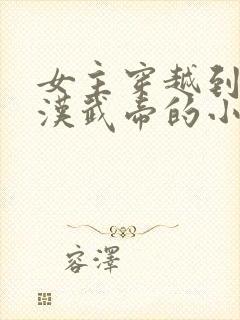 女主穿越到
漢武帝的小
容澤